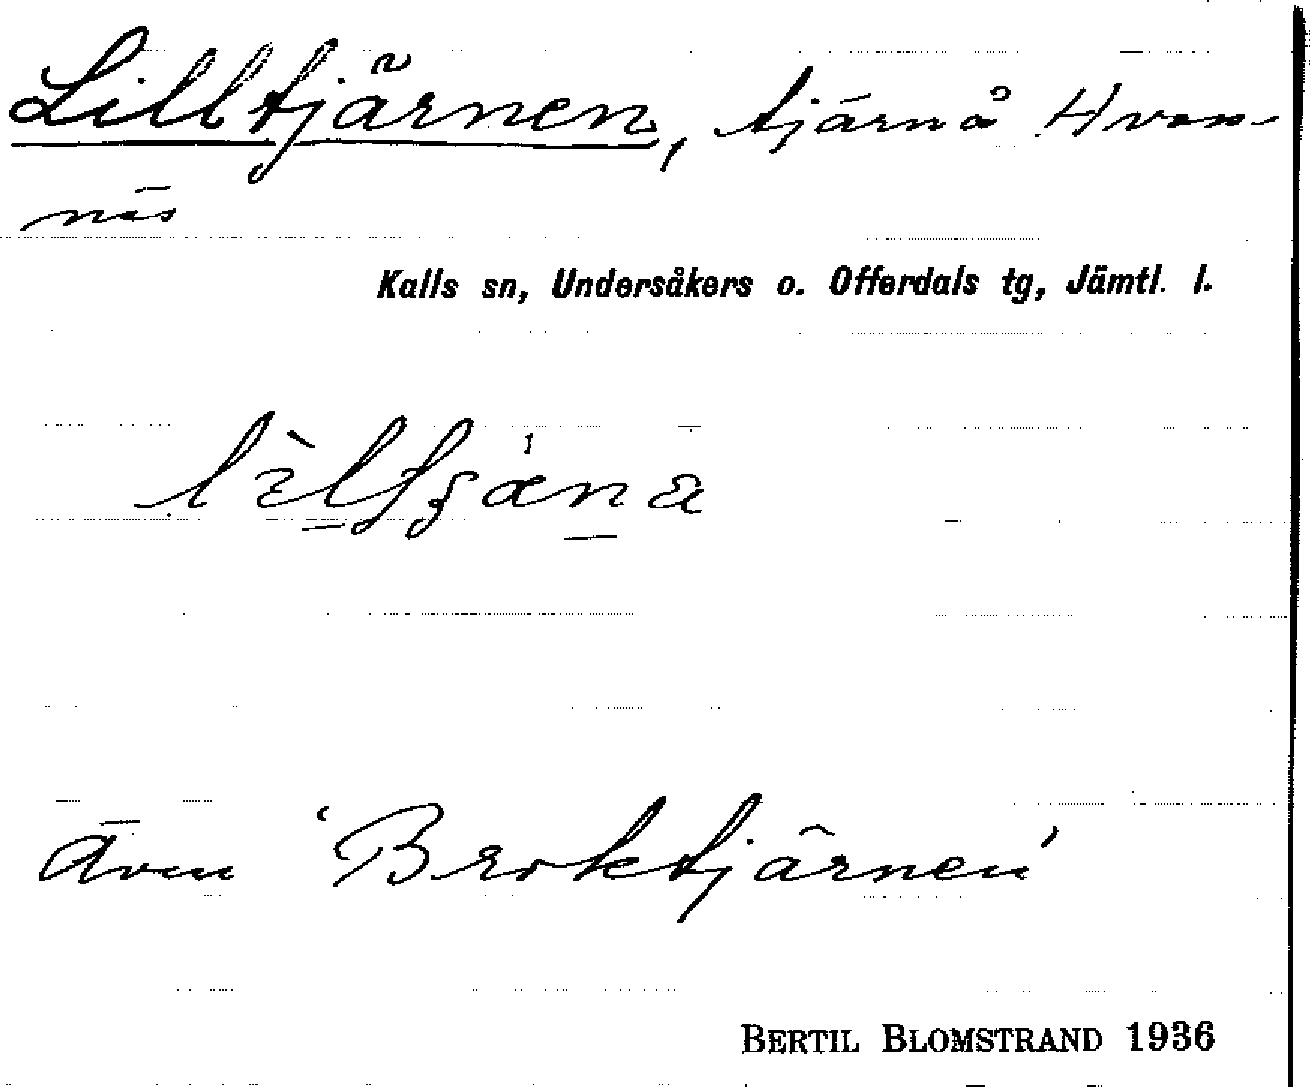 Lilltjärnen, tjärn å Hvam-
näs
Kalls sn, Undersåkers o. Offerdals tg, Jämtl. l.
Även 'Broktjärnen'
BERTIL BLOMSTRAND 1936